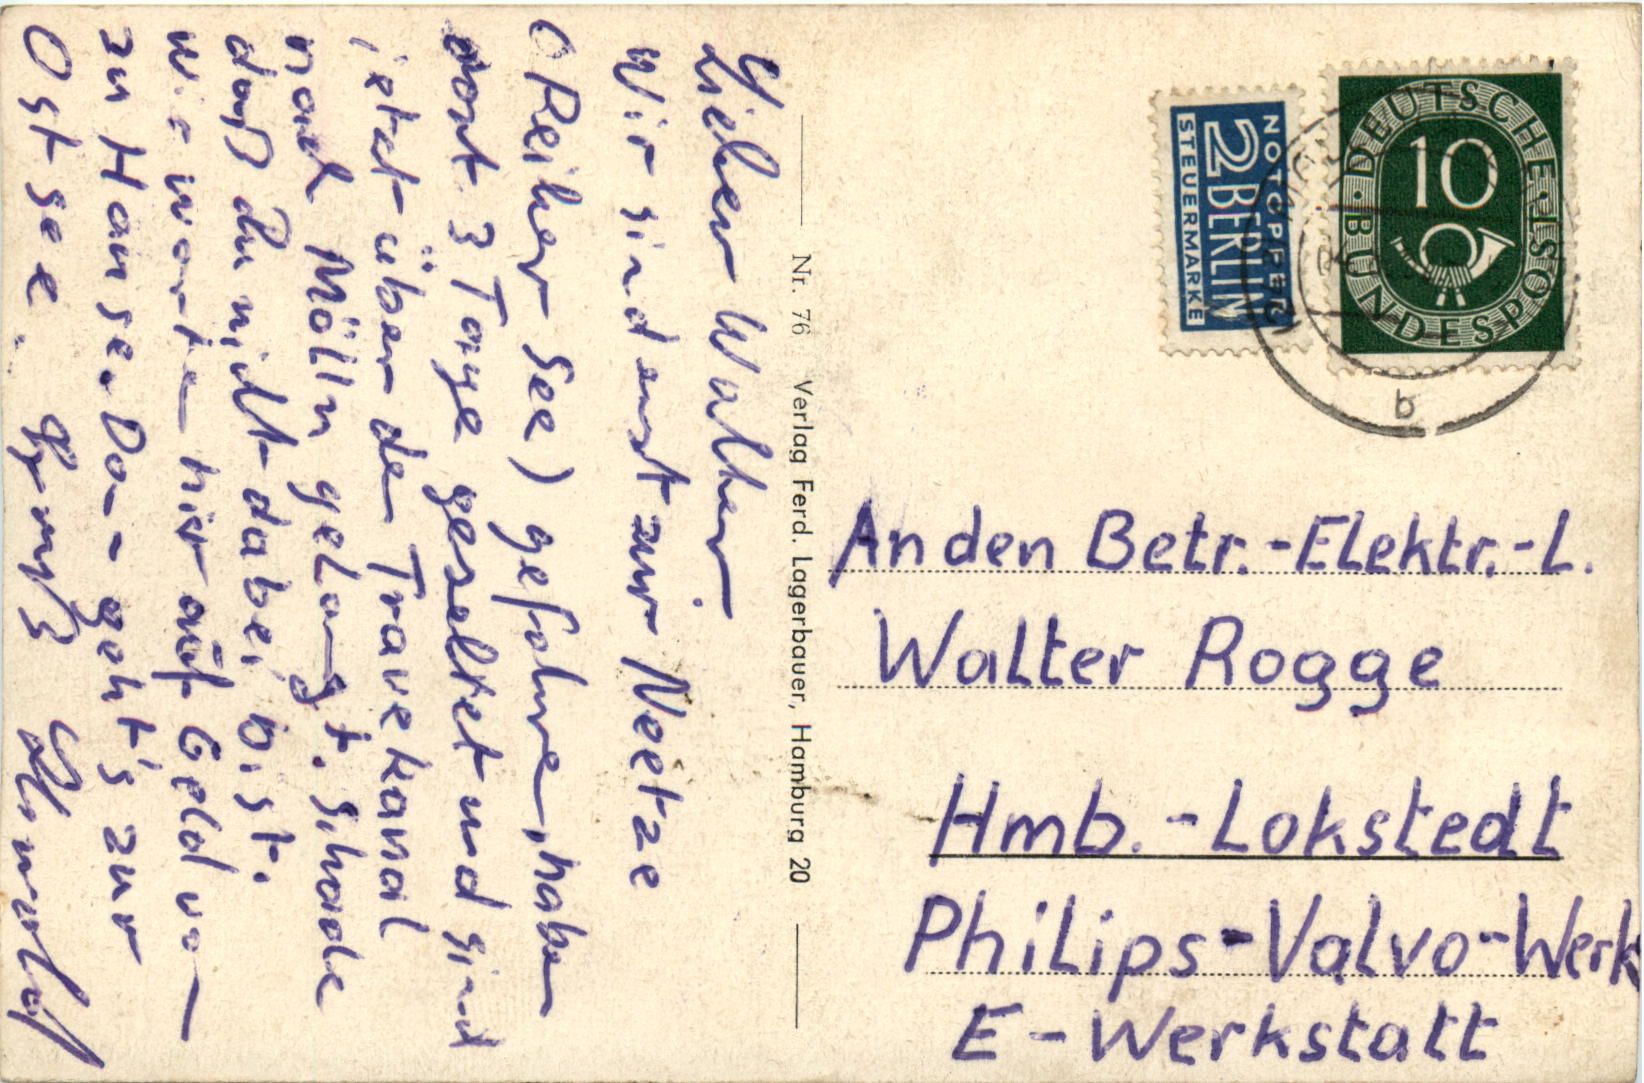 Lieber Walter
Wir sind erst zur Neetze
(Reiher See) gefahren, haben
dort 3 Tage gezeltet und sind
jetzt über den Travekanal
nach Mölln gelangt. Schade
daß du nicht dabei bist.
Wir warten hier auf Geld von
zu Hause. Dann geht's zur
Ostsee. Gruß
Nr. 76 Verlag Ferd. Lagerbauer, Hamburg 20
NOTOPFER
2 BERLIN
STEUERMARKE
DEUTSCHE BUNDESPOST
10
b
An den Betr.-Elektr.-L.
Walter Rogge
Hmb.-Lokstedt
Philips-Valvo-Werk
E-Werkstatt